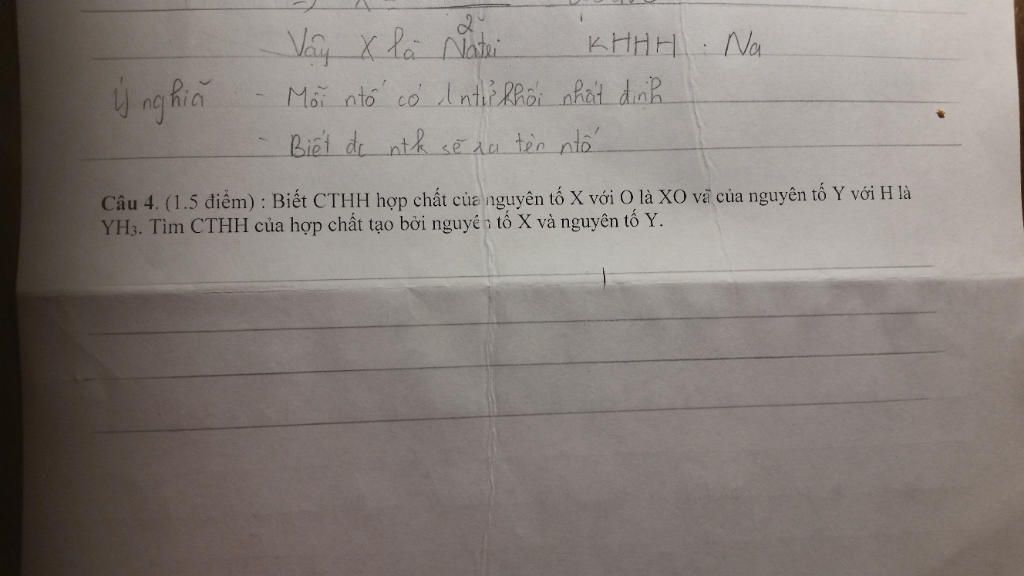 Vậy X là Natri KHHH : Na
Ý nghĩa - Mỗi ntố có 1 ntử khối nhất định
- Biết đc ntk sẽ ra tên ntố
Câu 4. (1.5 điểm) : Biết CTHH hợp chất của nguyên tố X với O là XO và của nguyên tố Y với H là
YH₃. Tìm CTHH của hợp chất tạo bởi nguyên tố X và nguyên tố Y.